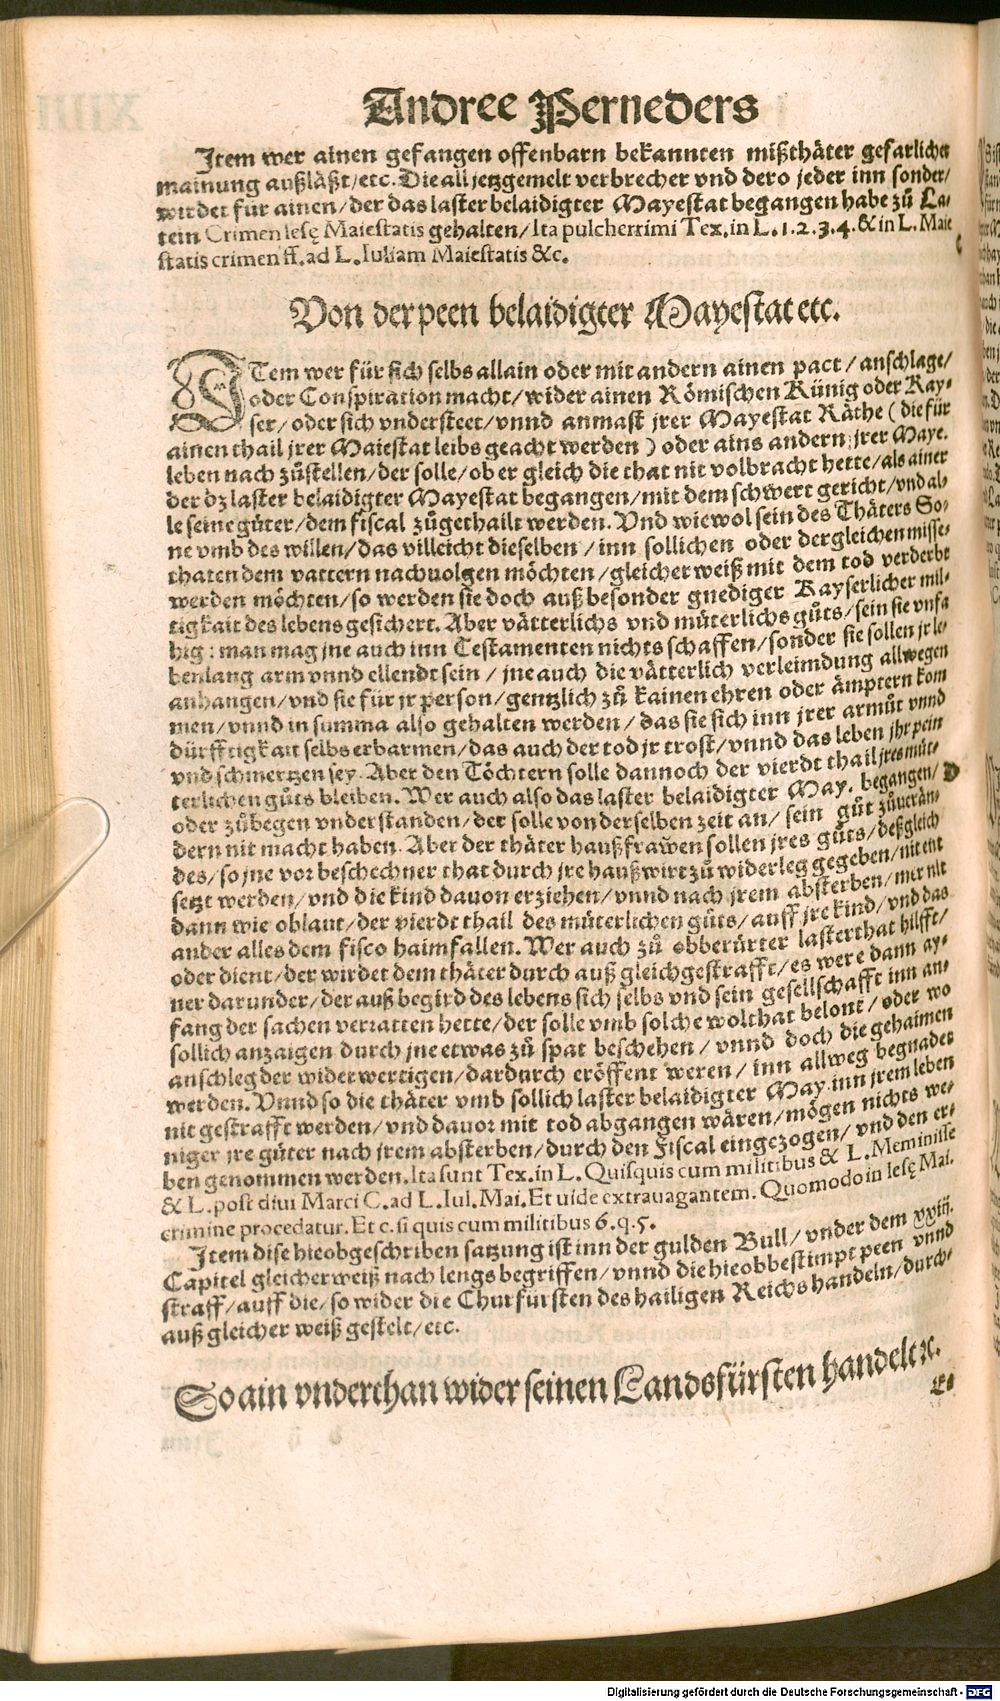 Andree Perneders
Jtem wer ainen gefangen offenbarn bekannten mißthäter gefarlicher
mainung außläßt/etc. Die all jetzgemelt verbrecher vnd dero jeder inn sonder/
wirdet für ainen/der das laster belaidigter Mayestat begangen habe zů La-
tein Crimen lesę Maiestatis gehalten/Ita pulcherrimi Tex. in L. 1. 2. 3. 4. & in L. Maie
statis crimen ff. ad L. Iuliam Maiestatis &c.
C
Von der peen belaidigter Mayestat etc.
JTem wer für sich selbs allain oder mit andern ainen pact/anschlage/
oder Conspiration macht/wider ainen Römischen Künig oder Kay-
ser/oder sich vndersteet/vnnd anmast jrer Mayestat Räthe (die für
ainen thail jrer Maiestat leibs geacht werden) oder ains andern jrer Maye.
leben nach zůstellen/der solle/ob er gleich die that nit volbracht hette/als ainer
der dz laster belaidigter Mayestat begangen/mit dem schwert gericht/vnd al-
le seine güter/dem fiscal zůgethailt werden. Vnd wiewol sein des Thäters So-
ne vmb des willen/das villeicht dieselben/inn sollichen oder dergleichen misse-
thaten dem vattern nachuolgen möchten/gleicher weiß mit dem tod verderbt
werden möchten/so werden sie doch auß besonder gnediger Kayserlicher mil-
tigkait des lebens gesichert. Aber vätterlichs vnd müterlichs gůts/sein sie vnfä
hig: man mag jne auch inn Testamenten nichts schaffen/sonder sie sollen jr le-
benlang arm vnnd ellendt sein/jne auch die vätterlich verleimdung allwegen
anhangen/vnd sie für jr person/gentzlich zů kainen ehren oder ämptern kom
men/vnnd in summa also gehalten werden/das sie sich inn jrer armůt vnnd
dürfftigkait selbs erbarmen/das auch der tod jr trost/vnnd das leben jhr pein
vnd schmertzen sey. Aber den Töchtern solle dannoch der vierdt thail jres müt-
terlichen gůts bleiben. Wer auch also das laster belaidigter May. begangen/
D
oder zůbegen vnderstanden/der solle von derselben zeit an/sein gůt zůuerän-
dern nit macht haben. Aber der thäter haußfrawen sollen jres gůts/deßgleich
des/so jne vor beschechner that durch jre haußwirt zů widerleg gegeben/nit ent
setzt werden/vnd die kind dauon erziehen/vnnd nach jrem absterben/mer nit
dann wie oblaut/der vierdt thail des müterlichen gůts/auff jre kind/vnd das
ander alles dem fisco haimfallen. Wer auch zů obberürter lasterthat hilfft/
oder dient/der wirdet dem thäter durch auß gleichgestrafft/es were dann ay-
ner darunder/der auß begird des lebens sich selbs vnd sein gesellschafft inn an-
fang der sachen verratten hette/der solle vmb solche wolthat belont/oder wo
sollich anzaigen durch jne etwas zů spat beschehen/vnnd doch die gehaimen
anschleg der widerwertigen/dardurch eröffent weren/inn allweg begnadet
werden. Vnnd so die thäter vmb sollich laster belaidigter May. inn jrem leben
nit gestrafft werden/vnd dauor mit tod abgangen wären/mögen nichts we-
niger jre güter nach jrem absterben/durch den Fiscal eingezogen/vnd den er-
ben genommen werden. Ita sunt Tex. in L. Quisquis cum militibus & L. Meminisse
& L. post diui Marci C. ad L. Iul. Mai. Et uide extrauagantem. Quomodo in lesę Mai.
crimine procedatur. Et c. si quis cum militibus 6. q. 5.
Jtem dise hieobgeschriben satzung ist inn der gulden Bull/vnder dem xxiiij.
Capitel gleicher weiß nach lengs begriffen/vnnd die hieobbestimpt peen vnnd
straff/auff die/so wider die Churfürsten des hailigen Reichs handeln/durch-
auß gleicher weiß gestelt/etc.
So ain vnderthan wider seinen Landsfürsten handelt ꝛc.
Es
Digitalisierung gefördert durch die Deutsche Forschungsgemeinschaft - DFG